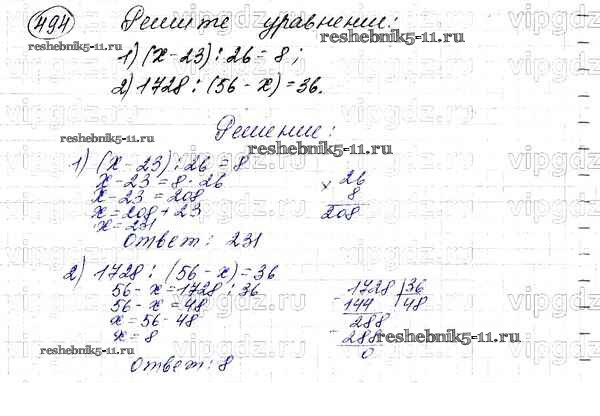 494 Решите уравнении:
reshebnik5-11.ru
1) (x-23) : 26 = 8;
2) 1728 : (56 - x) = 36.
reshebnik5-11.ru
Решение:
reshebnik5-11.ru
1) (x-23) : 26 = 8
x-23 = 8 · 26
x-23 = 208
x = 208 + 23
x = 231
× 26
8
208
reshebnik5-11.ru
Ответ: 231
2) 1728 : (56 - x) = 36
56 - x = 1728 : 36
56 - x = 48
x = 56 - 48
x = 8
- 1728 | 36
144 | 48
- 288
288
0
reshebnik5-11.ru
reshebnik5-11.ru
Ответ: 8
vipgdz.ru